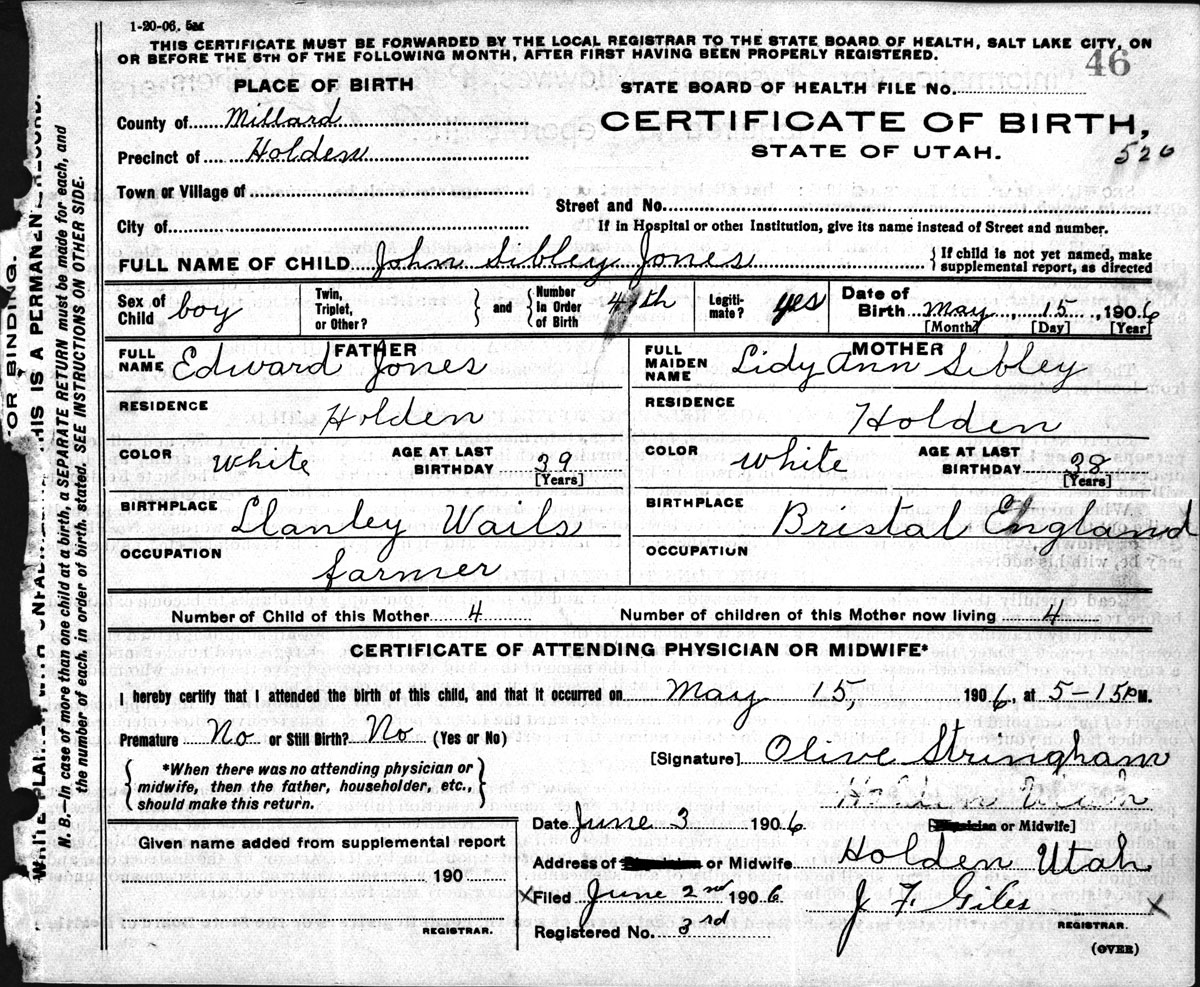 1-20-06. 5M
THIS CERTIFICATE MUST BE FORWARDED BY THE LOCAL REGISTRAR TO THE STATE BOARD OF HEALTH, SALT LAKE CITY, ON
OR BEFORE THE 5TH OF THE FOLLOWING MONTH, AFTER FIRST HAVING BEEN PROPERLY REGISTERED.
46
PLACE OF BIRTH
STATE BOARD OF HEALTH FILE No.
County of Millard
CERTIFICATE OF BIRTH,
Precinct of Holden
STATE OF UTAH.
526
Town or Village of
Street and No.
City of
If in Hospital or other Institution, give its name instead of Street and number.
FULL NAME OF CHILD John Sibley Jones
{ If child is not yet named, make
supplemental report, as directed
Sex of Child boy
Twin, Triplet, or Other?
} and {
Number In Order of Birth 4th
Legiti-mate? yes
Date of Birth May 15, 1906
[Month] [Day] [Year]
FATHER
FULL NAME Edward Jones
MOTHER
FULL MAIDEN NAME Lidy Ann Sibley
RESIDENCE Holden
RESIDENCE Holden
COLOR White AGE AT LAST BIRTHDAY 39 [Years]
COLOR White AGE AT LAST BIRTHDAY 38 [Years]
BIRTHPLACE Llanley Wails
BIRTHPLACE Bristal England
OCCUPATION farmer
OCCUPATION
Number of Child of this Mother 4
Number of children of this Mother now living 4
CERTIFICATE OF ATTENDING PHYSICIAN OR MIDWIFE*
I hereby certify that I attended the birth of this child, and that it occurred on May 15, 1906, at 5-15 P M.
Premature No or Still Birth? No (Yes or No)
[Signature] Olive Stringham
{ *When there was no attending physician or
midwife, then the father, householder, etc.,
should make this return. }
or Midwife]
Date June 3 1906
Address of or Midwife Holden Utah
Given name added from supplemental report
190
REGISTRAR.
X Filed June 2nd 1906
J F Giles X
REGISTRAR.
Registered No. 3rd
(OVER)
FOR BINDING.
THIS IS A PERMANENT RECORD.
N. B.—In case of more than one child at a birth, a SEPARATE RETURN must be made for each, and
the number of each, in order of birth, stated. SEE INSTRUCTIONS ON OTHER SIDE.